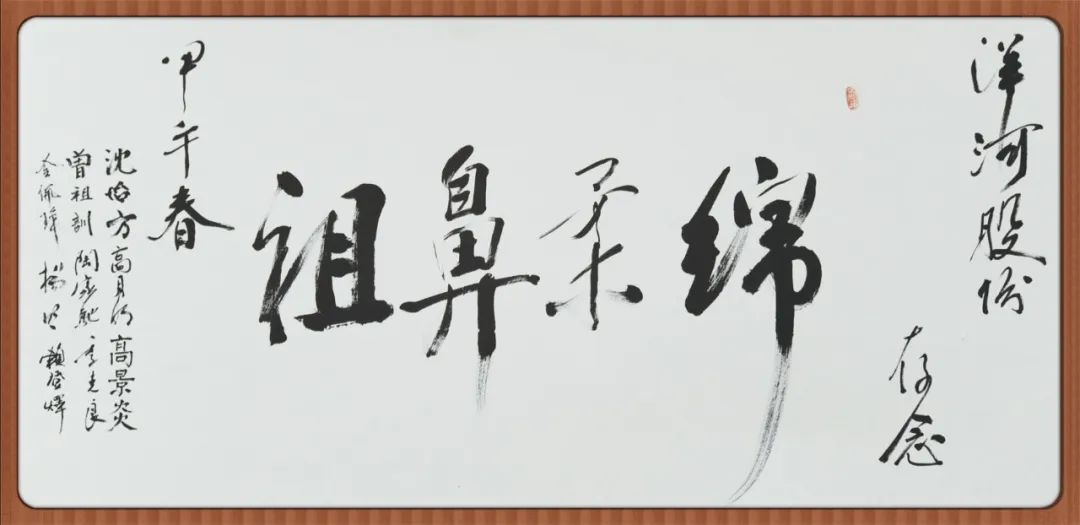 洋河股份
存念
绵柔鼻祖
甲午春
沈怡方 高月明 高景炎
曾祖訓 陶家馳 季克良
金佩璋 賴登燡